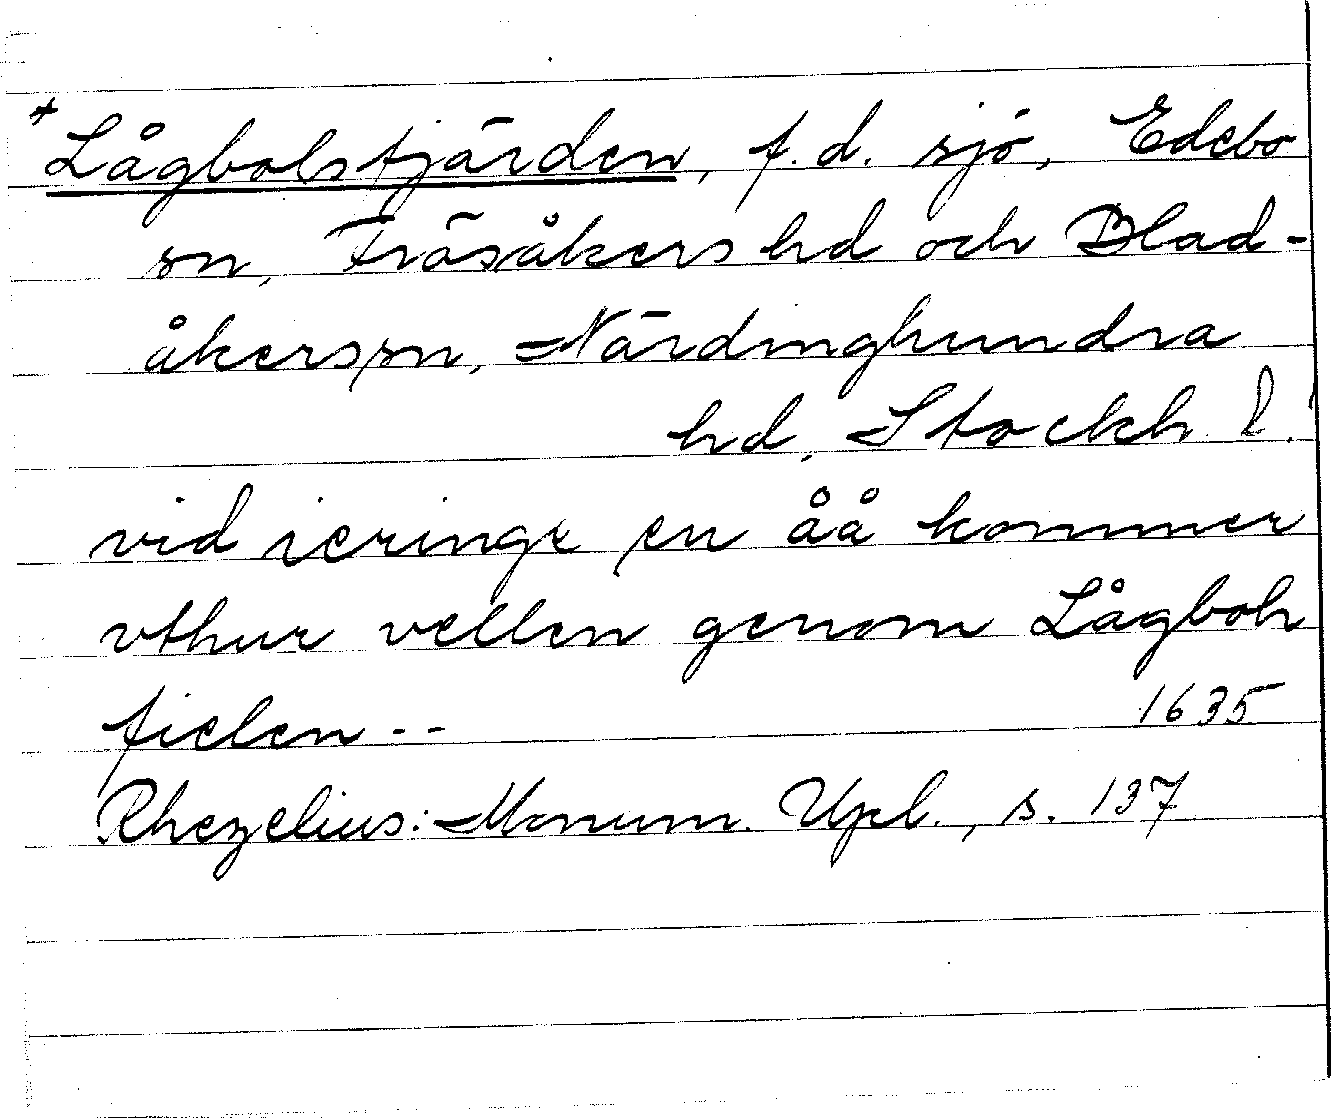 +Lågbolsfjärden, f.d. sjö, Edebo
sn, Frösåkers hd och Blad-
åkers sn, Närdinghundra
hd, Stockh. l.
vid ieringe en åå kommer
vthur vellen genom Lågboh
fielen --  1635
Rhezelius: Monum. Upl., s. 137